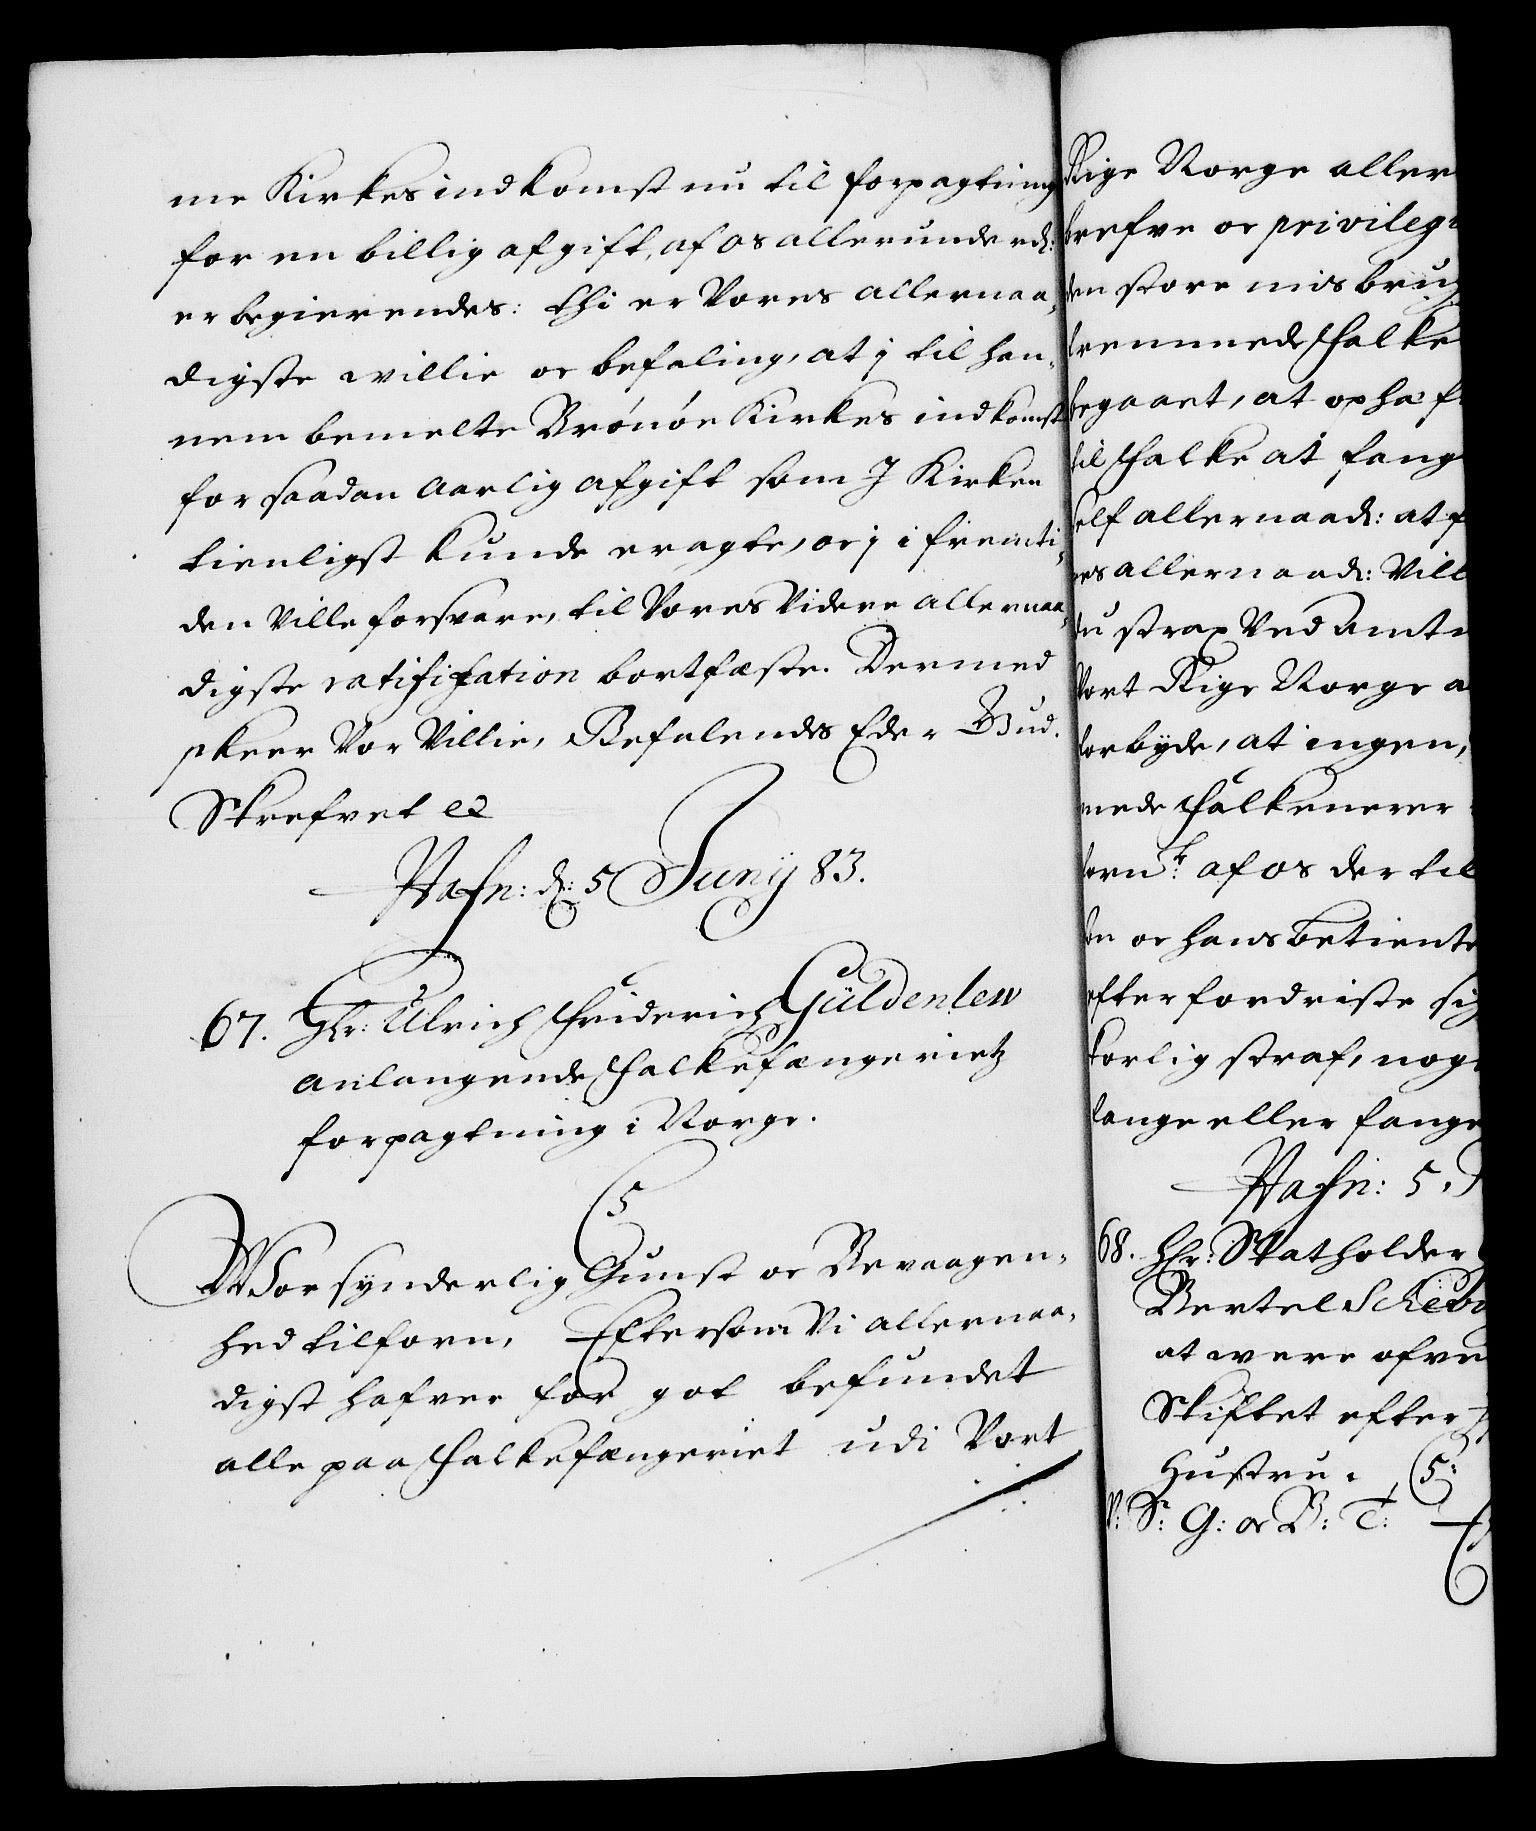 me Kirkes indkomst nu til forpagtning
for en billig afgift, af os allerunderd:
er begierendes: thi er Vores allernaa,
digste willie oc befaling, at j til han,
nem bemelte Brönöe Kirkes indkomst
for saadan aarlig afgift som I Kirken
tienligst kunde eragte, oc j i fremti,
den Ville forsvare, til Vores Videre allernaa,
digste ratification bortfæste. Dermed
skeer Vor Villie, Befalendes Eder Gud.
Skrefvet etc
Hafn: d: 5 Junij 83.
67. Hr: Ulrich Friderich Güldenlew
anlangende Falkefængerietz
forpagtning i Norge.
C5
Wor synderlig Gunst oc Bevaagen,
hed tilforn, Eftersom Vi allernaa,
digst hafver for got befundet
alle paa Falkefængeriet udi Vort
Rige Norge aller
brefve oc privilegi
den store misbrug
fremmede Falke
begaaet, at ophæf
til Falke at fang
self allernaad: at f
res allernaad: Vill
du strax Ved Amt
Vort Rige Norge a
forbyde, at ingen,
mede Falkenerer
af os der til
oc hans betiente
efter fordriste sig
straf, nog
fange eller fange
Hafn: 5. J
68. Hr: Statholder G
Bertel
at were ofve
Skiftet efter
Hustru. C5:
V: S: G: oc B: T: E